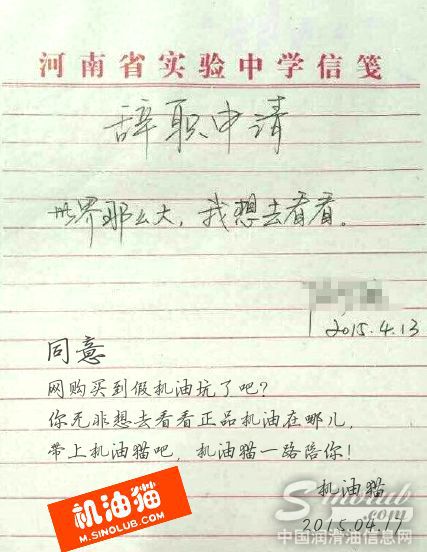 河南省实验中学信笺
辞职申请
世界那么大，我想去看看。
2015.4.13
同意
网购买到假机油坑了吧？
你无非想去看看正品机油在哪儿，
带上机油猫吧，机油猫一路陪你！
机油猫
2015.04.17
机油猫
M.SINOLUB.COM
Sinolub.com
中国润滑油信息网